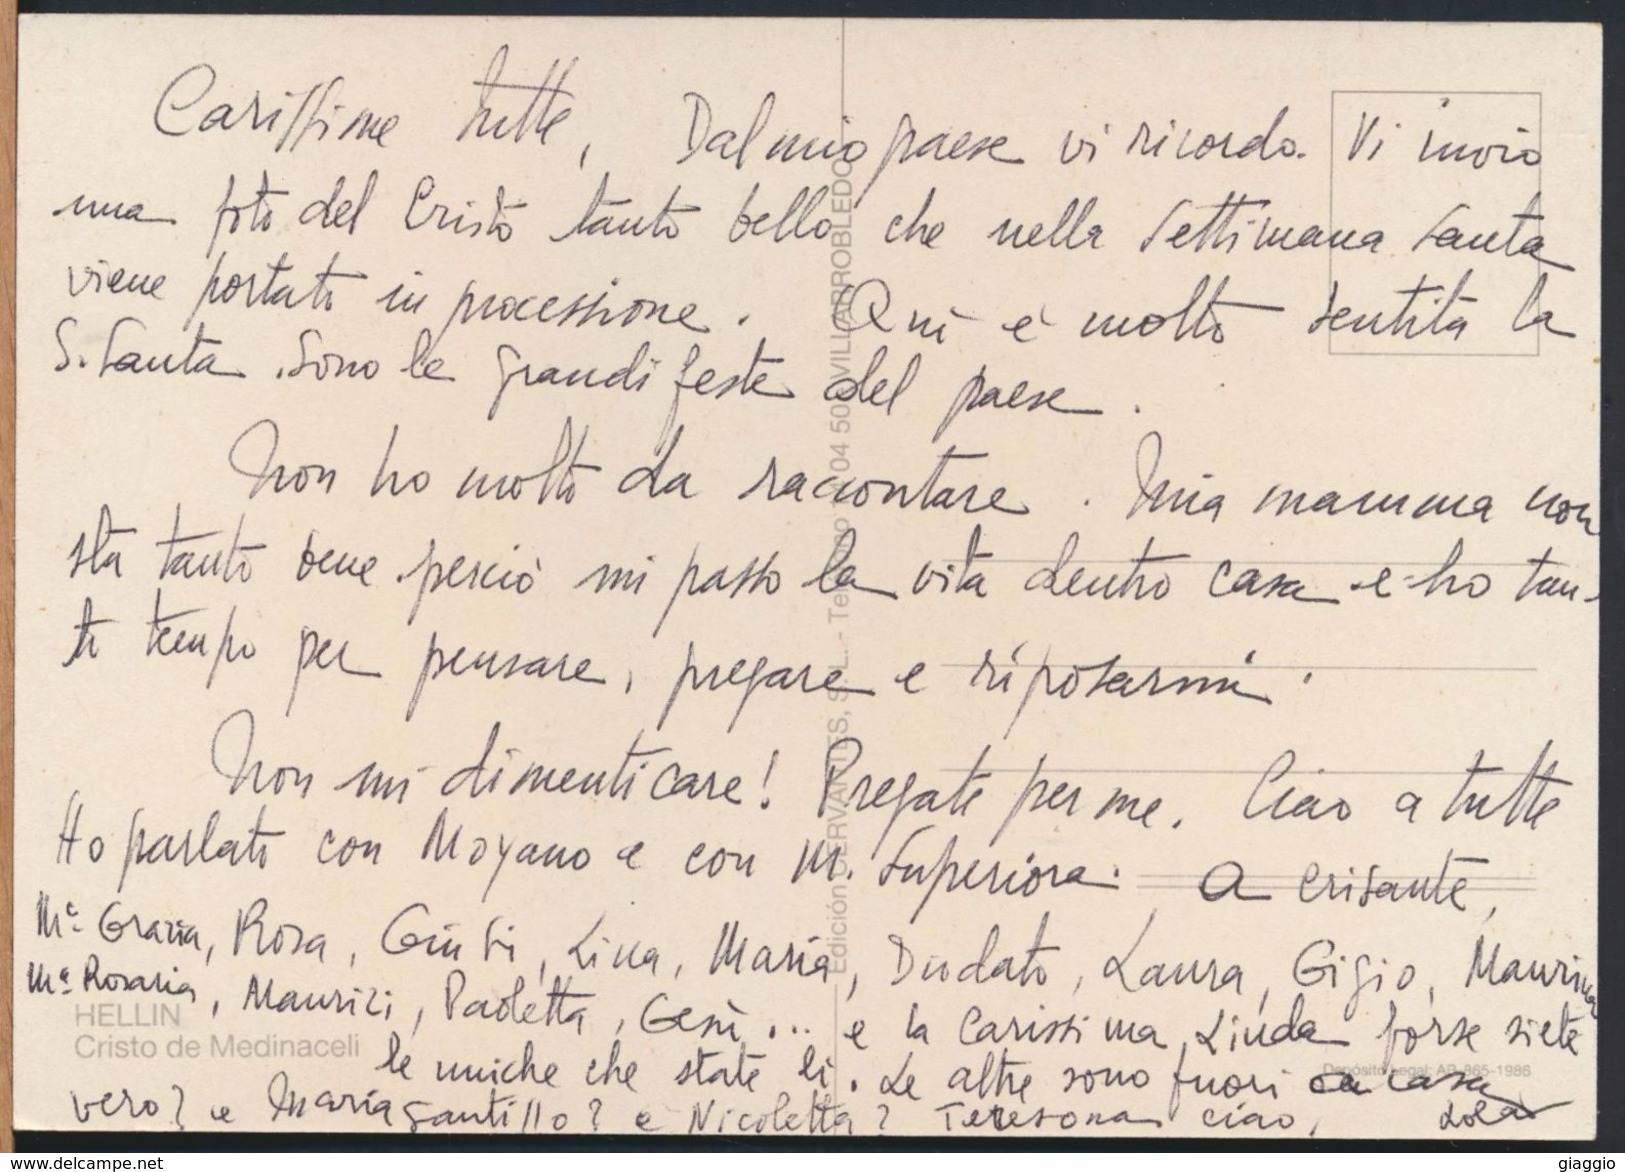 Carissime tutte, Dal mio paese vi ricordo. Vi invio
una foto del Cristo tanto bello che nella Settimana Santa
viene portato in processione. Qui è molto sentita la
S. Santa. Sono le grandi feste del paese.
Non ho molto da raccontare. Mia mamma non
sta tanto bene perciò mi passo la vita dentro casa e ho tan-
to tempo per pensare, pregare e riposarmi.
Non mi dimenticare! Pregate per me. Ciao a tutte
Ho parlato con Moyano e con M. Superiora. A Crisante,
Mª Grazia, Rosa, Giusi, Lina, Maria, Diodato, Laura, Gigio, Maurina
Mª Rosaria, Maurizi, Paoletta, Gesù... e la carissima Linda forse siete
le uniche che state lì. Le altre sono fuori casa
vero? e Mariagantillo? e Nicoletta? Teresona ciao, Lola
HELLIN
Cristo de Medinaceli
Edición CERVANTES, S.L. - Teléfono 04 50 VILLARROBLEDO
Depósito Legal: AB-865-1986
giaggio
www.delcampe.net